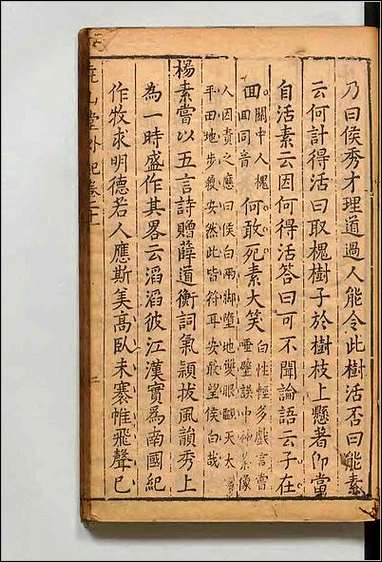 乃曰侯秀才理道過人能令此樹活否曰能素
云何計得活曰取槐樹子於樹枝上懸著卽當
自活素云因何得活答曰可不聞論語云子在
回關中人槐
回同音何敢死素大笑白性輕多戲言嘗
唾壁誤中神荼像
人因責之應曰侯白兩脚墮地雙眼覷天太
平田地步履安然此皆符耳安敢望侯白哉
楊素嘗以五言詩贈薛道衡詞氣頴拔風韻秀上
為一時盛作其畧云滔滔彼江漢實爲南國紀
作牧求明德若人應斯美高臥未褰帷飛聲已
堯山堂外紀卷二十